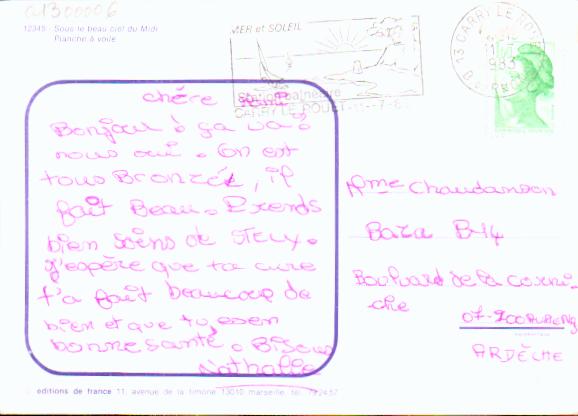 01300006
12345 - Sous le beau ciel du Midi
Planche à voile
MER et SOLEIL
Station balnéaire
CARRY LE ROUET
13 CARRY LE ROUET
1983
chère
Bonjour ! ça va ?
nous oui. On est
tous Bronzés, il
fait Beau. Prends
bien soins de
J'espère que ta cure
t'a fait beaucoup de
bien et que tu es en
bonne santé. Bisous
Nathalie
Mme Chaudanson
Bata B-14
Boulvard de la corni-
che
07-200 AUBENAS
ARDÈCHE
editions de france 11, avenue de la timone 13010 marseille tél. 79.24.57